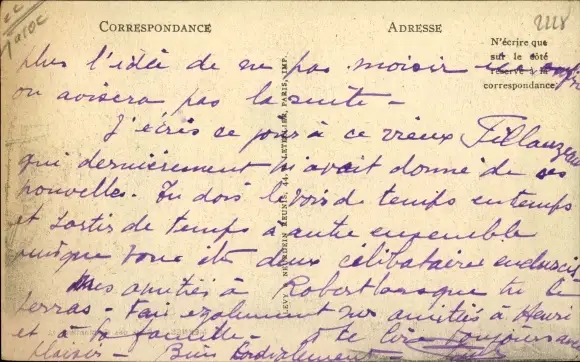 Maroc
2118
CORRESPONDANCE
ADRESSE
N'écrire que
sur le côté
réservé à la
correspondance.
plus l'idée de ne pas moisir
on avisera pas la suite –
J'écris ce jour à ce vieux Fillauzeau
qui dernièrement m'avait donné de ses
nouvelles. Tu dois le voir de temps en temps
et sortir de temps à autre ensemble
puisque vous êtes deux célibataires endurcis
Mes amitiés à Robert lorsque tu le
verras – Fais également mes amitiés à Henri
et à ta famille – te lire toujours avec
plaisir – Bien Cordialement –
LEVY & NEURDEIN REUNIS, 44, LETELLIER, PARIS, IMP.